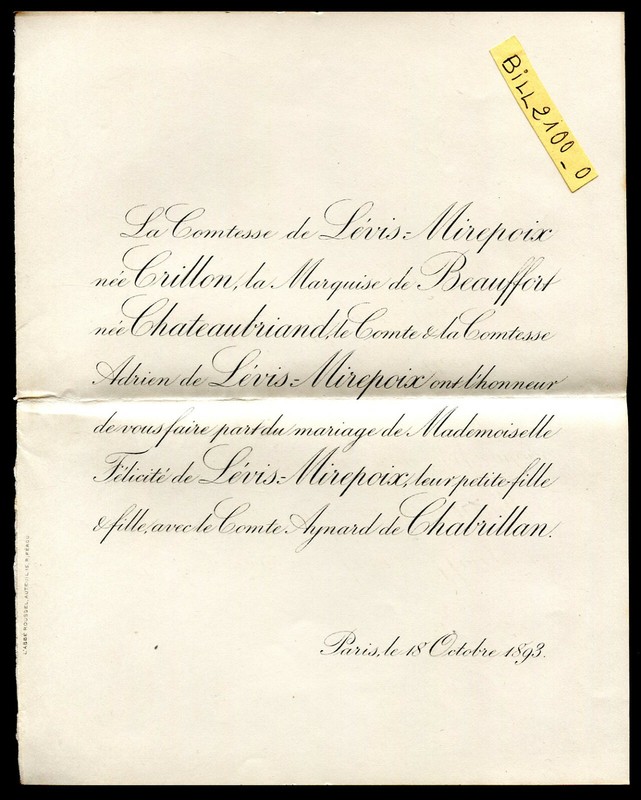 BILL2100_0
La Comtesse de Lévis=Mirepoix
née Crillon, la Marquise de Beauffort
née Chateaubriand, le Comte & la Comtesse
Adrien de Lévis=Mirepoix ont l'honneur
de vous faire part du mariage de Mademoiselle
Félicité de Lévis=Mirepoix, leur petite-fille
& fille, avec le Comte Aynard de Chabrillan.
Paris, le 18 Octobre 1893.
L'ABBÉ ROUSSEL, AUTEUIL